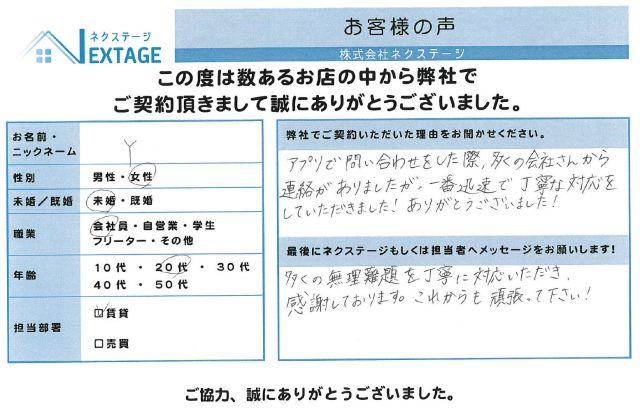 ネクステージ
NEXTAGE
お客様の声
株式会社ネクステージ
この度は数あるお店の中から弊社で
ご契約頂きまして誠にありがとうございました。
お名前・
ニックネーム
Y
性別
男性・女性
未婚/既婚
未婚・既婚
職業
会社員・自営業・学生
フリーター・その他
年齢
10代 ・ 20代 ・ 30代
40代 ・ 50代
担当部署
☑賃貸
□売買
弊社でご契約いただいた理由をお聞かせください。
アプリで問い合わせをした際、多くの会社さんから
連絡がありましたが、一番迅速で丁寧な対応を
していただきました!ありがとうございました!
最後にネクステージもしくは担当者へメッセージをお願いします!
多くの無理難題を丁寧に対応いただき、
感謝しております。これからも頑張って下さい!
ご協力、誠にありがとうございました。